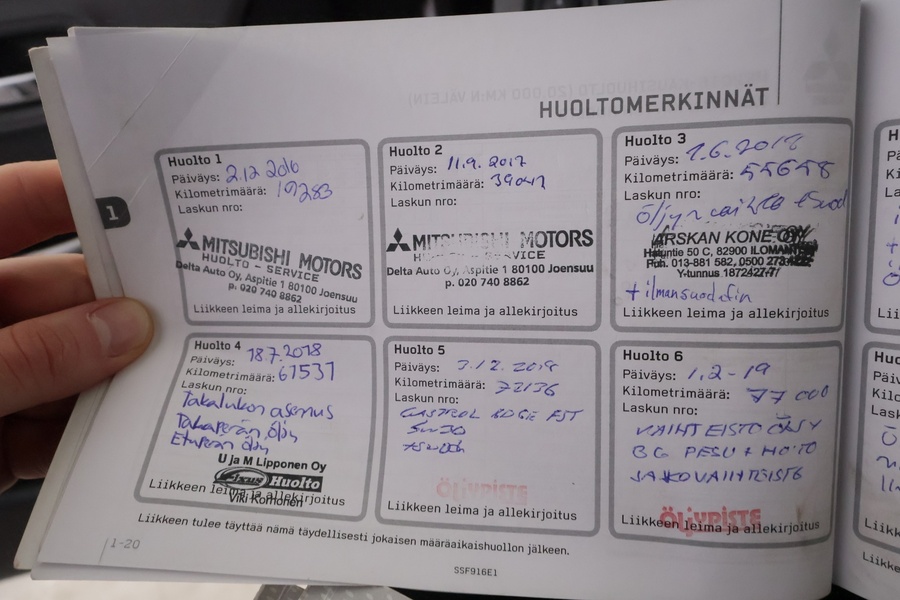 HUOLTOMERKINNÄT
Huolto 1
Päiväys: 2.12 2016
Kilometrimäärä: 19283
Laskun nro:
MITSUBISHI MOTORS
HUOLTO - SERVICE
Delta Auto Oy, Aspitie 1 80100 Joensuu
p. 020 740 8862
Liikkeen leima ja allekirjoitus
Huolto 2
Päiväys: 11.9. 2017
Kilometrimäärä: 39041
Laskun nro:
MITSUBISHI MOTORS
SERVICE
Delta Auto Oy, Aspitie 1 80100 Joensuu
p. 020 740 8862
Liikkeen leima ja allekirjoitus
Huolto 3
Päiväys: 1.6.2018
Kilometrimäärä: 55658
Laskun nro:
Öljyn vaihto
ARSKAN KONE OY
50 C, 82900 ILOMANTSI
Puh. 013-881 582, 0500
Y-tunnus 1872427-7
+ ilmansuodatin
Liikkeen leima ja allekirjoitus
Huolto 4
Päiväys: 18.7.2018
Kilometrimäärä: 61531
Laskun nro:
Takalukon asennus
Takaperän öljy
Etuperän öljy
U ja M Lipponen Oy
Huolto
Liikkeen leima ja allekirjoitus
Viki Korhonen
Huolto 5
Päiväys: 3.12.2018
Kilometrimäärä: 72136
Laskun nro:
CASTROL EDGE FST
5W30
Liikkeen leima ja allekirjoitus
Huolto 6
Päiväys: 1.2-19
Kilometrimäärä: 77 000
Laskun nro:
VAIHTEISTO ÖLJY
BG PESU + HOITO
JAKOVAIHTEISTO
ÖLJYPISTE
Liikkeen leima ja allekirjoitus
Liikkeen tulee täyttää nämä täydellisesti jokaisen määräaikaishuollon jälkeen.
1-20
SSF916E1
1